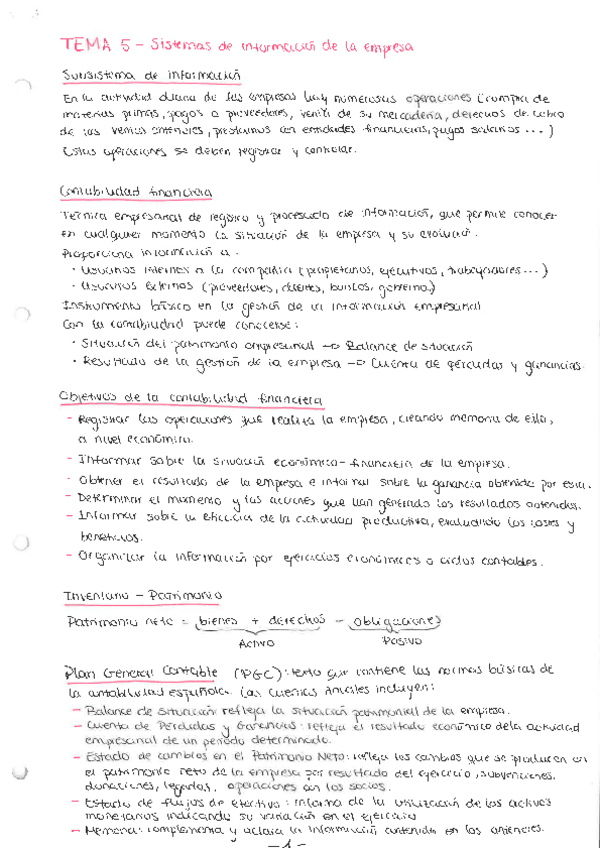 TEMA 5 - Sistemas de información de la empresa
Subsistema de información
En la actividad diaria de las empresas hay numerosas operaciones (compra de
materias primas, pagos a proveedores, venta de su mercadería, derechos de cobro
de las ventas anteriores, préstamos con entidades financieras, pagos salarios ...)
Estas operaciones se deben registrar y controlar.
Contabilidad financiera
Técnica empresarial de registro y procesado de información, que permite conocer
en cualquier momento la situación de la empresa y su evolución.
Proporciona información a:
· Usuarios internos a la compañía (propietarios, ejecutivos, trabajadores ...)
· Usuarios externos (proveedores, clientes, bancos, gobierno)
Instrumento básico en la gestión de la información empresarial
Con la contabilidad puede conocerse:
· Situación del patrimonio empresarial → Balance de situación
· Resultado de la gestión de la empresa → Cuenta de pérdidas y ganancias.
Objetivos de la contabilidad financiera
- Registrar las operaciones que realiza la empresa, creando memoria de ella,
a nivel económico.
- Informar sobre la situación económico-financiera de la empresa.
- Obtener el resultado de la empresa e informar sobre la ganancia obtenida por esta.
- Determinar el momento y las acciones que han generado los resultados obtenidos.
- Informar sobre la eficacia de la actividad productiva, evaluando los costes y
beneficios.
- Organizar la información por ejercicios económicos o ciclos contables.
Inventario - Patrimonio
Patrimonio neto = bienes + derechos - obligaciones
Activo Pasivo
Plan General Contable (PGC): texto que contiene las normas básicas de
la contabilidad española. Las Cuentas Anuales incluyen:
- Balance de Situación: refleja la situación patrimonial de la empresa.
- Cuenta de Pérdidas y Ganancias: refleja el resultado económico de la actividad
empresarial de un periodo determinado.
- Estado de cambios en el Patrimonio Neto: refleja los cambios que se producen en
el patrimonio neto de la empresa por resultado del ejercicio, subvenciones,
donaciones, legados, operaciones con los socios.
- Estado de flujos de efectivo: informa de la utilización de los activos
monetarios indicando su variación en el ejercicio
- Memoria: complementa y aclara la información contenida en los anteriores.
-1-